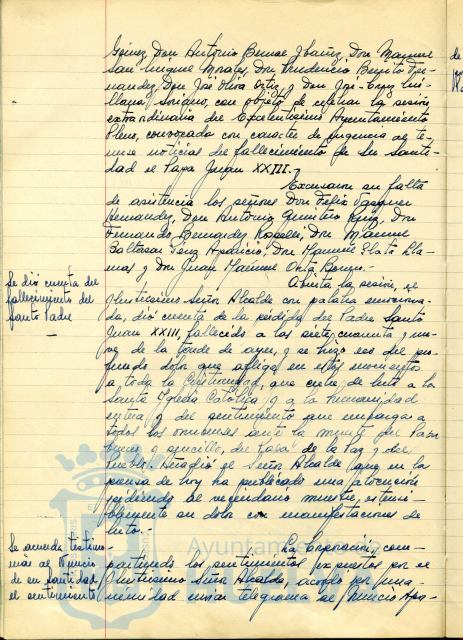 Gómez, Don Antonio Bernal Ibáñez, Don Manuel
San-Miguel Morales, Don Prudencio Benito Fer-
nandez, Don José Oliva Ortiz y Don José-Cruz Mi-
llana Soriano, con objeto de celebrar la sesión
extraordinaria del Excelentísimo Ayuntamiento
Pleno, convocado con caracter de urgencia al te-
nerse noticias del fallecimiento de Su Santi-
dad el Papa Juan XXIII.-
Excusaron su falta
de asistencia los señores Don Félix Vazquez
Hernandez, Don Antonio Quintero, Don
Fernando Bernandez, Don Manuel
Baltasar Aparicio, Don Manuel Plata Lla-
mas y Don Juan Manuel Orta.-
Se dió cuenta del
fallecimiento del
Santo Padre
Abierta la sesión, el
Ilustrísimo Señor Alcalde con palabra emociona-
da, dió cuenta de la pérdida del Padre Santo
Juan XXIII, fallecido a las siete, cuarenta y nue-
ve de la tarde de ayer, y se hizo eco del pro-
fundo dolor que aflige en estos momentos
a toda la Cristiandad, que cubre de luto a la
Santa Iglesia Católica y a la humanidad
entera y del sentimiento que embarga a
todos los onubenses ante la muerte del Papa
bueno y sencillo, del Papa de la Paz y del
Pueblo. Añadió el Señor Alcalde que en la
prensa de hoy ha publicado una alocución
pidiendo al vecindario muestre, ostensi-
blemente su dolor con manifestaciones de
luto.-
Se acuerda testimo-
niar al Nuncio
de su Santidad
el sentimiento
La Corporación, com-
partiendo los sentimientos expuestos por el
Ilustrísimo Señor Alcalde, acordó por una-
nimidad enviar telegrama al Nuncio Apo-
de
Ayuntamiento de